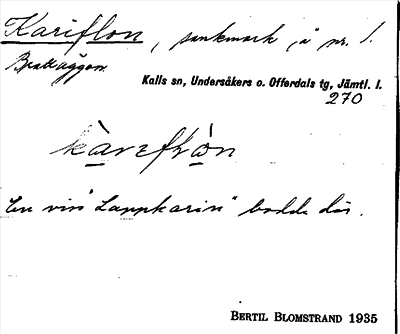 Kariflon, sankmark, å nr. 1.
Brattåggen.
Kalls sn, Undersåkers o. Offerdals tg, Jämtl. l.
270
En viss "Lappkarin" bodde där.
BERTIL BLOMSTRAND 1935